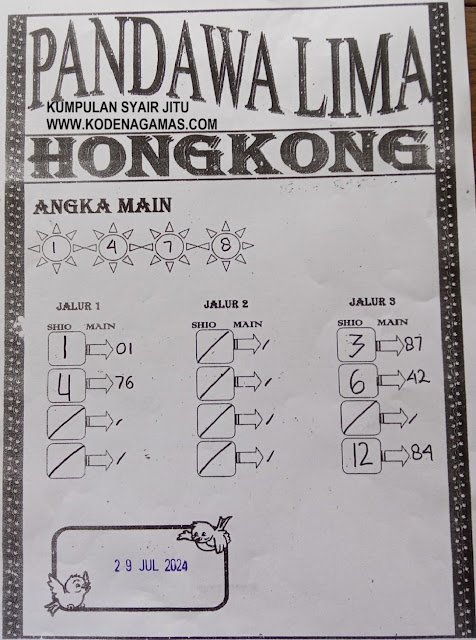 PANDAWA LIMA
KUMPULAN SYAIR JITU
WWW.KODENAGAMAS.COM
HONGKONG
ANGKA MAIN
1 4 7 8
JALUR 1 JALUR 2 JALUR 3
SHIO MAIN SHIO MAIN SHIO MAIN
1 01 / / 3 87
4 76 / / 6 42
/ / / / / /
/ / / / 12 84
29 JUL 2024